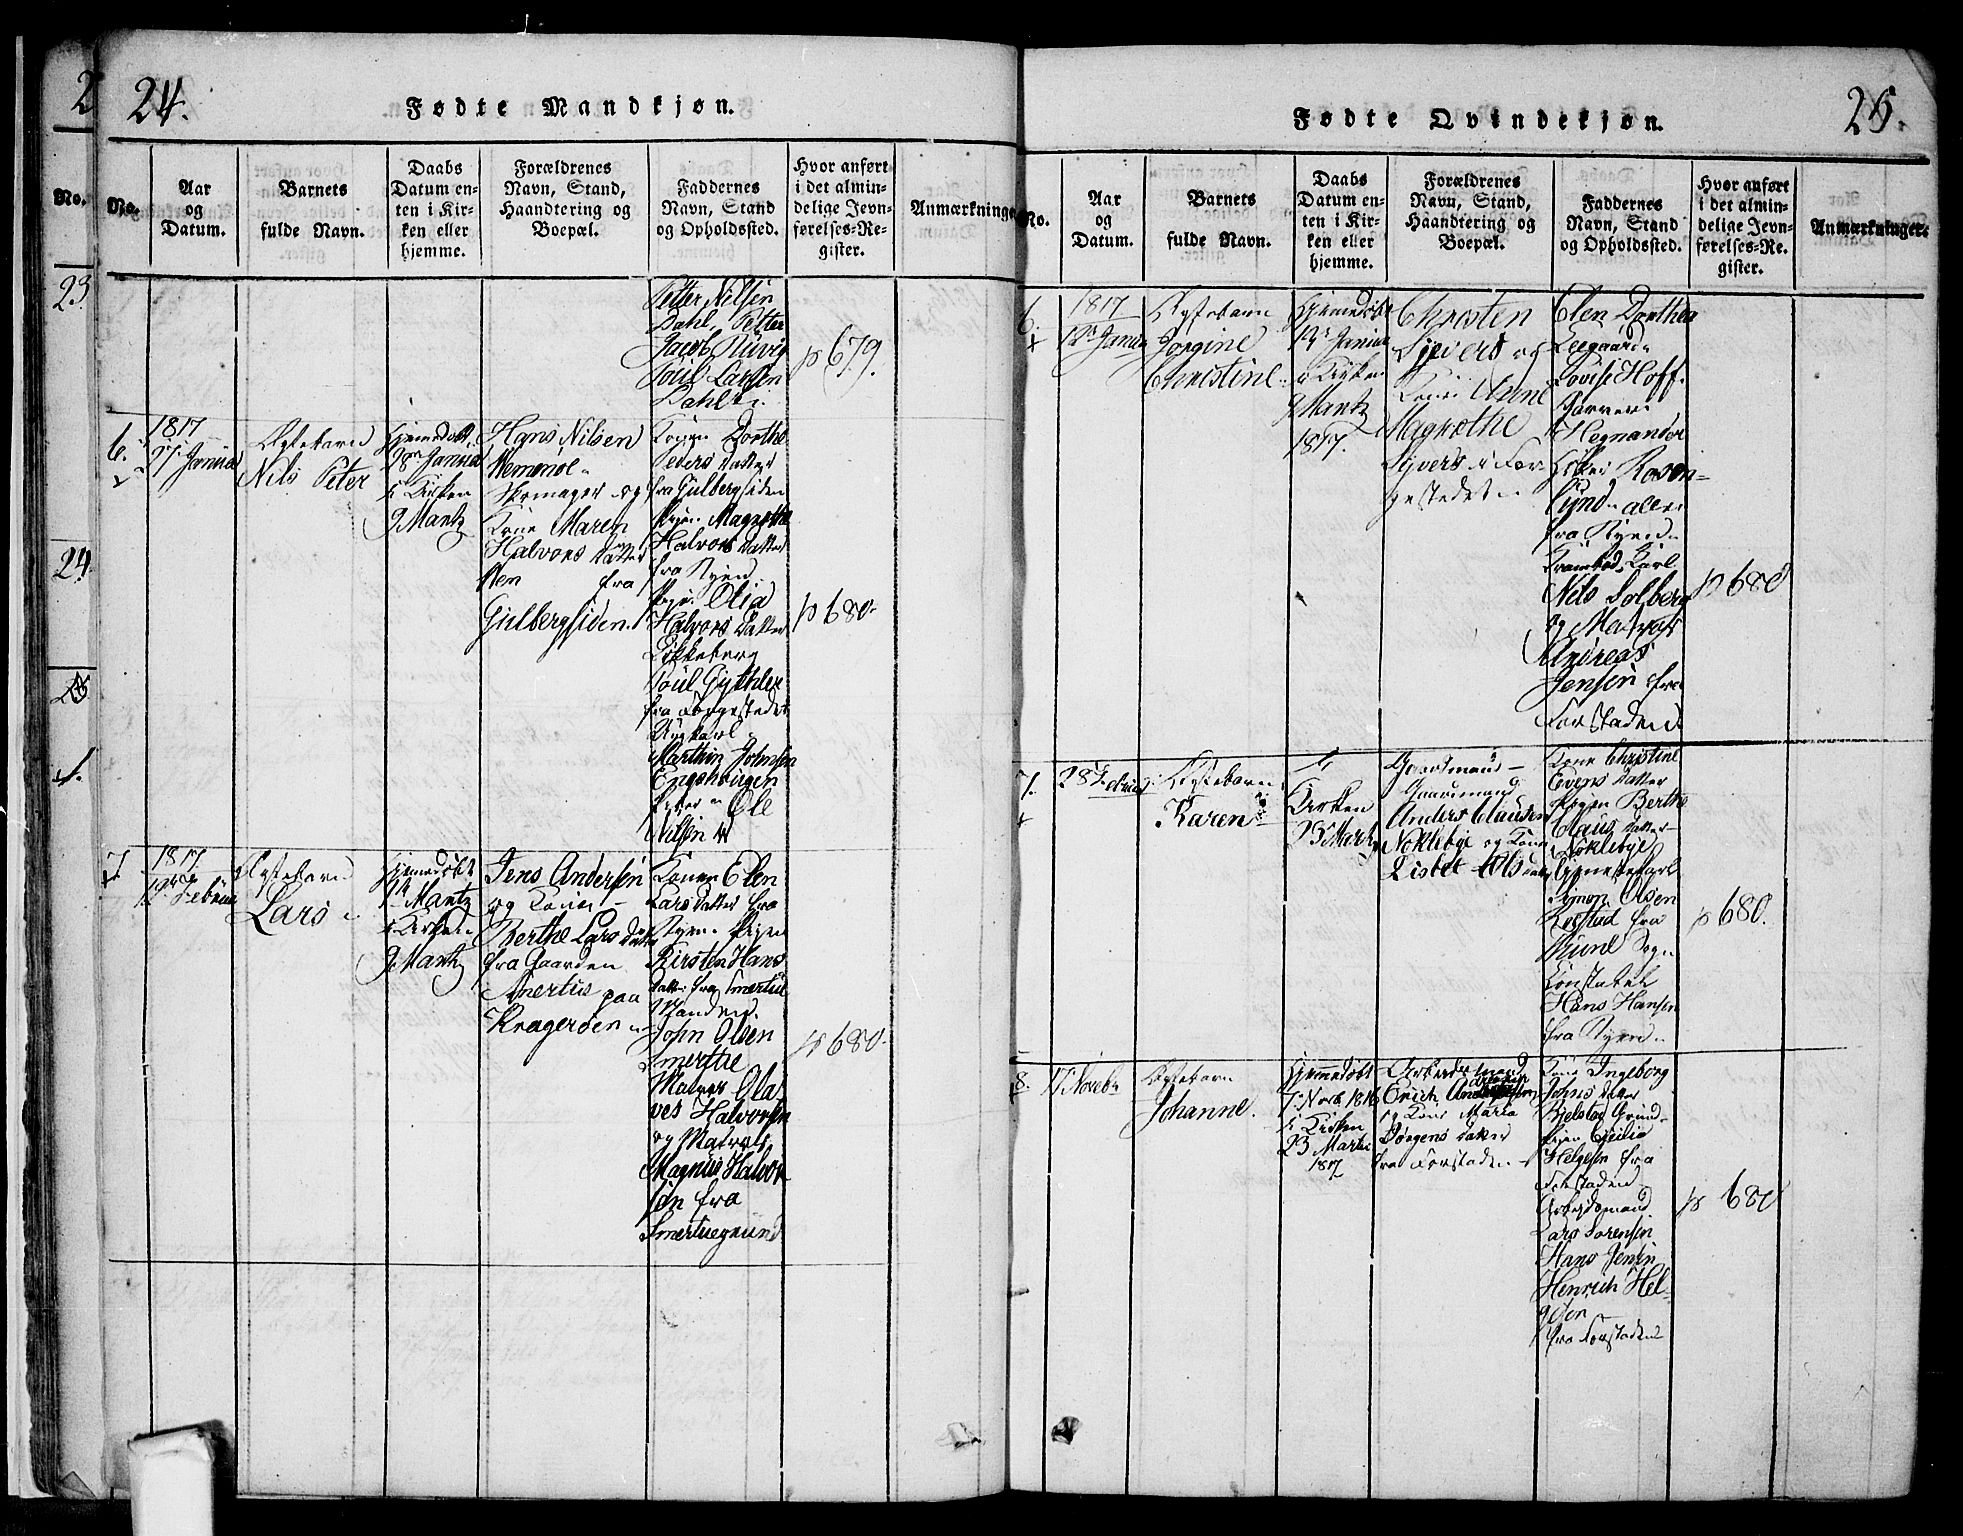 24.
Fødte Mandkjøn.
No.
Aar
og
Datum.
Barnets
fulde Navn.
Daabs
Datum en-
ten i Kir-
ken eller
hjemme.
Forældrenes
Navn, Stand,
Haandtering og
Boepæl.
Faddernes
Navn, Stand
og Opholdssted.
Hvor anført
i det almin-
delige Jevn-
førelses-Re-
gister.
Anmærkninger
Petter Nilsen
Dahl, Petter
Jacob
Poul Larsen
Dahl
p 679.
6.
1817
17 Januar
Ægtebarn
Nils Peter
Hjemedøbt
18 Januar
i Kirken
9 Martz
Hans Nilsen
Skomager og
Kone Maren
Halvors Datter
fra
Gulbergsiden
Dorthe
Peders Datter
fra Gulbergsiden
Pigen Magrethe
Halvors Datter
fra Byen
Pigen Olia
Halvors Datter
Likkeberg
Poul Gythler
fra Forgestedet
Ungkarl
Marthin Johnsen
Engehougen
Ole
Nilsen
p 680
7
1817
12 Februar
Ægtebarn
Lars
Hjemedøbt
Martz
i Kirken
9 Martz
Jens Andersen
og Kone
Berthe Lars Datter
fra Gaarden
Smertus paa
Kragerøen
Konen Elen
Lars Datter fra
Byen Pigen
Kirsten Hans
Datter fra Smertue
John Olsen
Smerthe
Matros Ola
ves Halvorsen
og Matros
Magnus Halvor
sen fra
Smertuegrund
p 680.
25.
Fødte Qvindekjøn.
No.
Aar
og
Datum.
Barnets
fulde Navn.
Daabs
Datum en-
ten i Kir-
ken eller
hjemme.
Forældrenes
Navn, Stand,
Haandtering og
Boepæl.
Faddernes
Navn, Stand
og Opholdssted.
Hvor anført
i det almin-
delige Jevn-
førelses-Re-
gister.
Anmærkninger.
6.
1817
12 Januar
Ægtebarn
Jorgine
Christine
Hjemedøbt
14 Januar
i Kirken
9 Martz
1817.
Christen
Sijvers og
Kone Anne
Magrethe
Sijvers i For
gestedet
Elen Dorthea
Leegaard
Lovise Hoff
Garver
Hegnander
Rosen-
lund alle
fra Byen
Krambod Karl
Nils Solberg
og Matros
Andreas
Jensen fra
Forstaden
p 680
7.
28 Februar
Ægtebarn
Karen
i
Kirken
23 Martz
Gaardmand
Anders Clausen
Noklebye og Kone
Lisbet Ols Datter
Kone Christine
Evens Datter
Pigen Berthe
Claus Datter
Noklebye
Tjenestekarl
Symon Olsen
Rorstad fra
Konstabel
Hans Hansen
fra Byen
p 680.
8.
17 Novebr
Ægtebarn
Johanne.
Hjemmedøbt
Novb 1816
i Kirken
23 Marti
1817
Arbeidsmand
Erich
og Kone Maria
Jørgens Datter
fra Forstaden
Kone Ingeborg
Johns Datter
Bjelstad Grund
Pigen Cicilie
Helgesen fra
Forstaden
Arbeidsmand
Lars Sørensen
Hans Jensen
Henrich Hel-
gesen
fra Forstaden
p 680
No.
23
24.